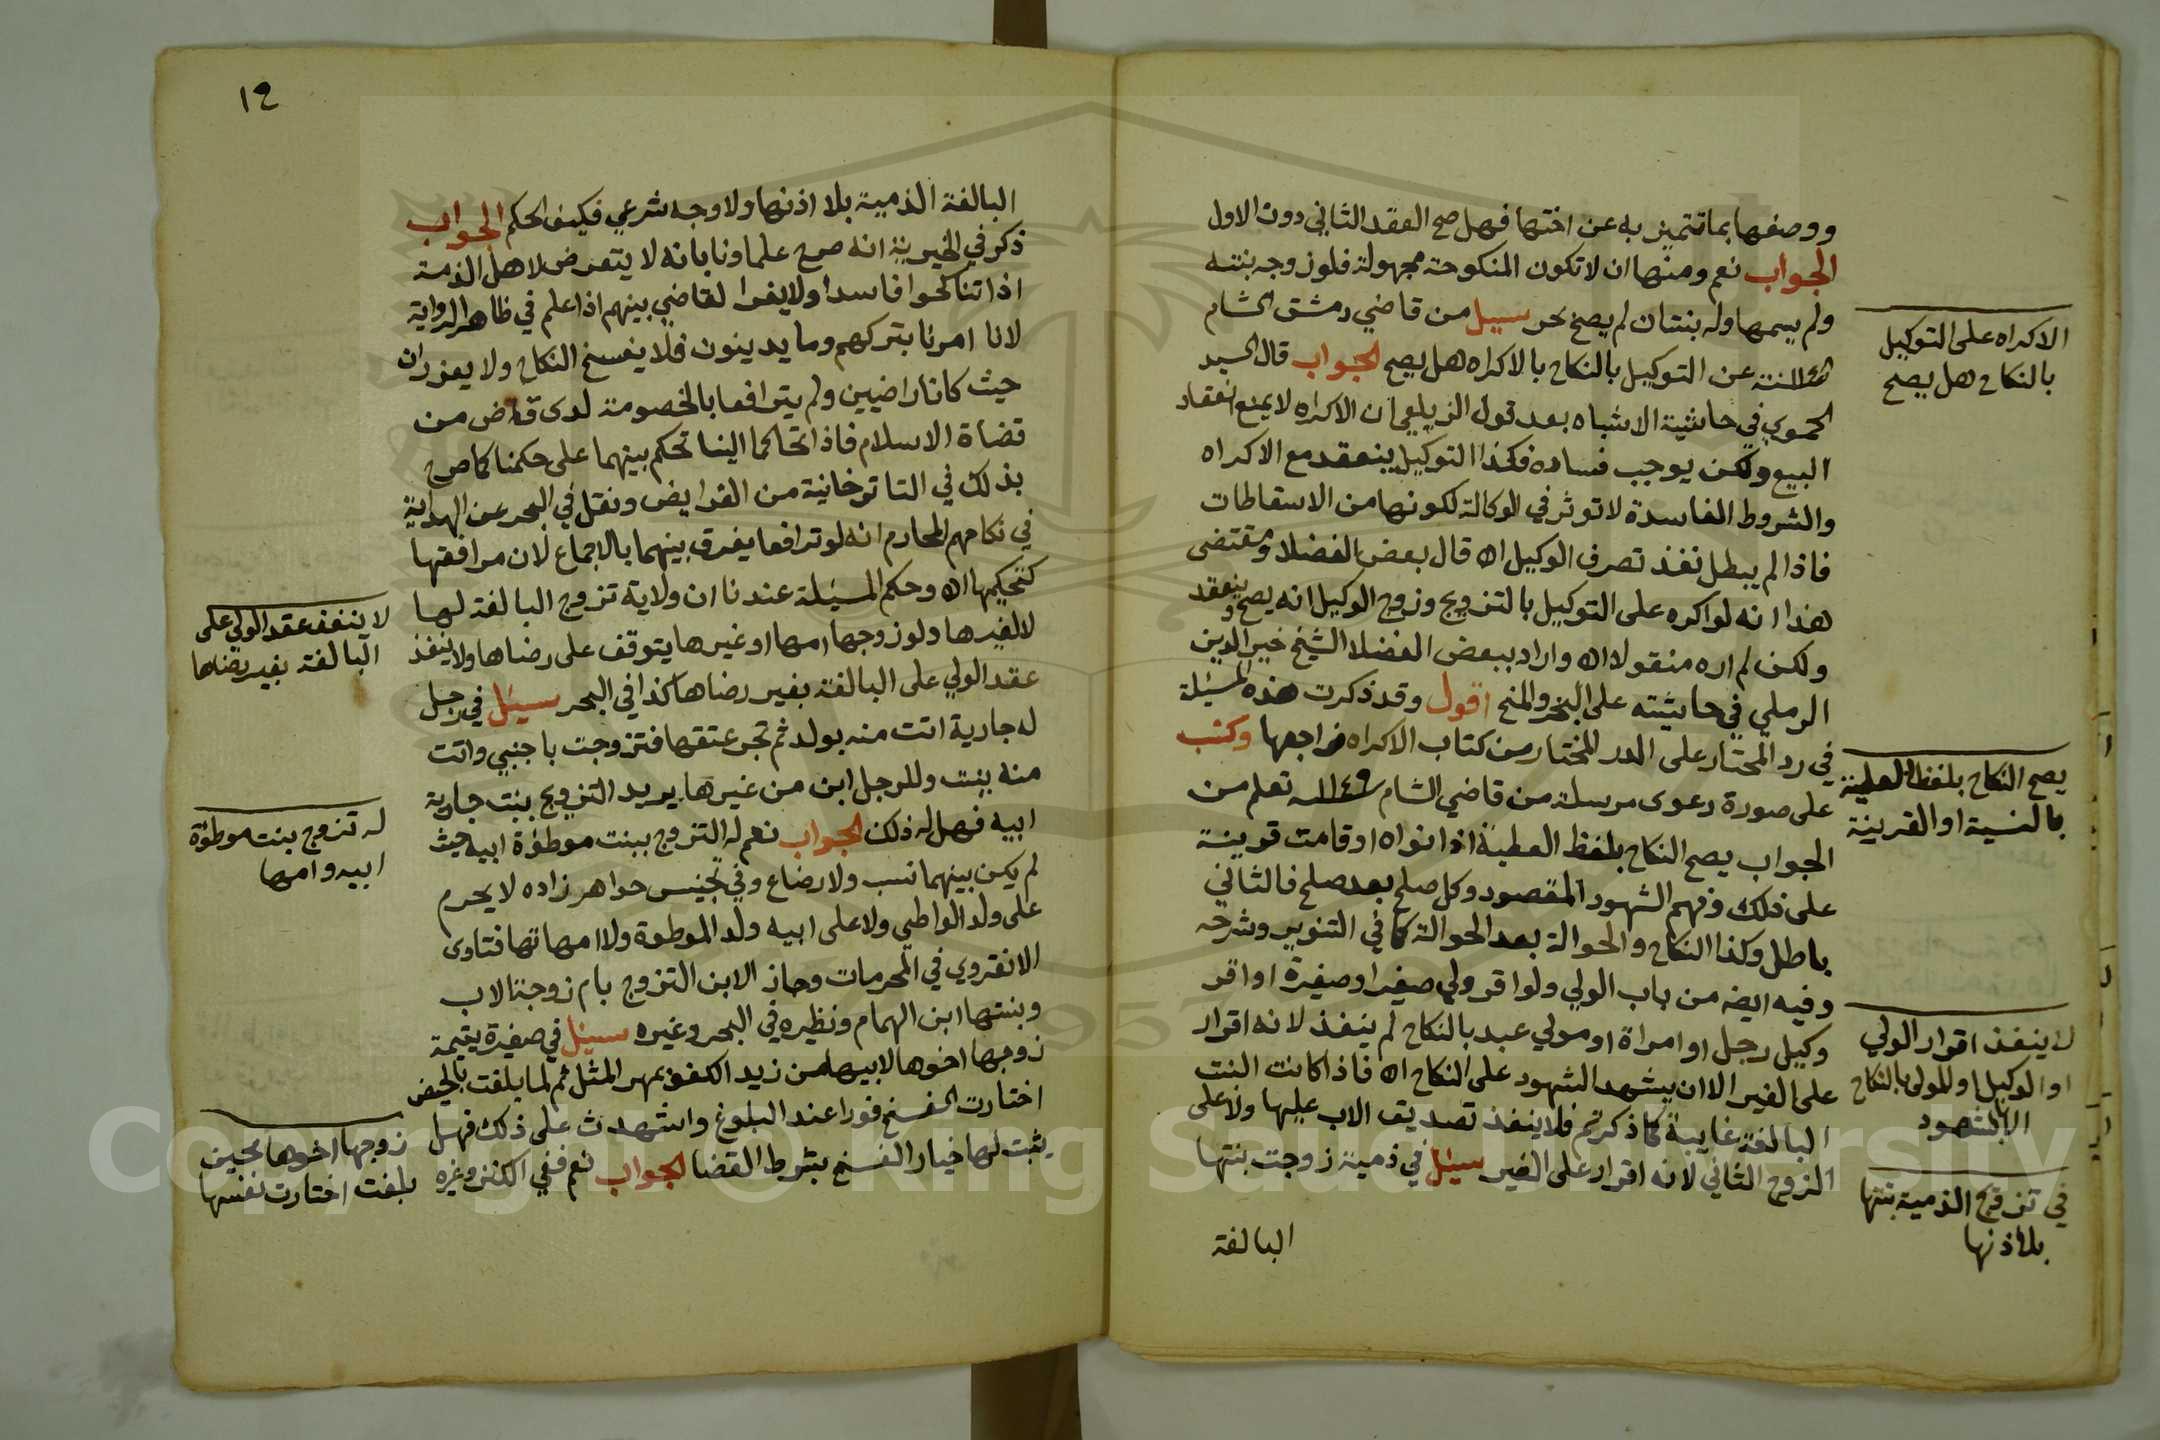 ووصفها بما تتميز به عن اختها فهل صح العقد الثاني دون الاول
الجواب نعم ومنها ان لا تكون المنكوحة مجهولة فلو زوجه بنته
ولم يسمها وله بنتان لم يصح بحر سيل من قاضي دمشق الشام
عن التوكيل بالنكاح بالاكراه هل يصح الجواب قال السيد
الحموي في حاشية الاشباه بعد قول الزيلعي ان الاكراه لا يمنع انعقاد
البيع ولكن يوجب فساده فكذا التوكيل ينعقد مع الاكراه
والشروط الفاسدة لا توثر في الوكالة لكونها من الاسقاطات
فاذا لم يبطل نفذ تصرف الوكيل اه قال بعض الفضلا ومقتضى
هذا انه لو اكره على التوكيل بالتزويج وزوج الوكيل انه يصح وينعقد
ولكن لم اره منقولا اه واراد ببعض الفضلا الشيخ خير الدين
الرملي في حاشيته على البحر والمنح اقول وقد ذكرت هذه المسئلة
في رد المحتار على الدر المختار من كتاب الاكراه فراجعها وكتب
على صورة دعوى مرسلة من قاضي الشام ١٢٤٩ تعلم من
الجواب يصح النكاح بلفظ العطية اذا نواه او قامت قرينة
على ذلك وفهم الشهود المقصود وكل صلح بعد صلح فالثاني
باطل وكذا النكاح والحوالة بعد الحوالة كما في التنوير وشرحه
وفيه ايضه من باب الولي ولو اقر ولي صغير او صغيرة او اقر
وكيل رجل او امراة او مولي عبد بالنكاح لم ينفذ لانه اقرار
على الغير الا ان يشهد الشهود على النكاح اه فاذا كانت البنت
البالغة غايبة كما ذكرتم فلا ينفذ تصديق الاب عليها ولا على
الزوج الثاني لانه اقرار على الغير سيئل في ذمية زوجت بنتها
البالغة
الاكراه على التوكيل
بالنكاح هل يصح
يصح النكاح بلفظ العطية
بالنسية او القرينة
لا ينفذ اقرار الولي
او الوكيل او المولى بالنكاح
الا بالشهود
في تزويج الذمية بنتها
بلا اذنها
١٢
البالغة الذمية بلا اذنها ولا وجه شرعي فكيف الحكم الجواب
ذكر في الخيرية انه صرح علماونا بانه لا يتعرض لاهل الذمة
اذا تناكحوا فاسدا ولا يفرق القاضي بينهم اذا علم في ظاهر الرواية
لانا امرنا بتركهم وما يدينون فلا يفسخ النكاح ولا يعزران
حيث كانا راضيين ولم يترافعا بالخصومة لدى قاض من
قضاة الاسلام فاذا تحاكما الينا نحكم بينهما على حكمنا كما صرح
بذلك في التاتر خانية من الفرايض ونقل في البحر عن الهداية
في نكاحهم المحارم انه لو ترافعا يفرق بينهما بالاجماع لان مرافعتها
كتحكيمها اه وحكم المسئلة عندنا ان ولاية تزوج البالغة لها
لا لغيرها ولو زوجها امها او غيرها يتوقف على رضاها ولا ينفذ
عقد الولي على البالغة بغير رضاها كذا في البحر سيئل في رجل
له جارية اتت منه بولد ثم نجز عتقها فتزوجت باجنبي واتت
منه ببنت وللرجل ابن من غيرها يريد التزويج ببنت جارية
ابيه فهل له ذلك الجواب نعم له التزوج ببنت موطؤة ابيه حيث
لم يكن بينهما نسب ولا رضاع وفي تجنيس خواهر زاده لا يحرم
على ولد الواطي ولا على ابيه ولد الموطوة ولا امهاتها فتاوى
الانقروي في المحرمات وجاز الابن التزوج بام زوجة الاب
وبنتها ابن الهمام ونظيره في البحر وغيره سيئل في صغيرة يتيمة
زوجها اخوها لابيها من زيد الكفؤ بمهر المثل ثم لما بلغت بالحيض
اختارت الفسخ فورا عند البلوغ واشهدت على ذلك فهل
يثبت لها خيار الفسخ بشرط القضا الجواب نعم ففي الكنز وغيره
لا ينفذ عقد الولي على
البالغة بغير رضاها
له تزوج بنت موطؤة
ابيه وامها
زوجها اخوها فحين
بلغت اختارت نفسها
Copyright © King Saud University
1957